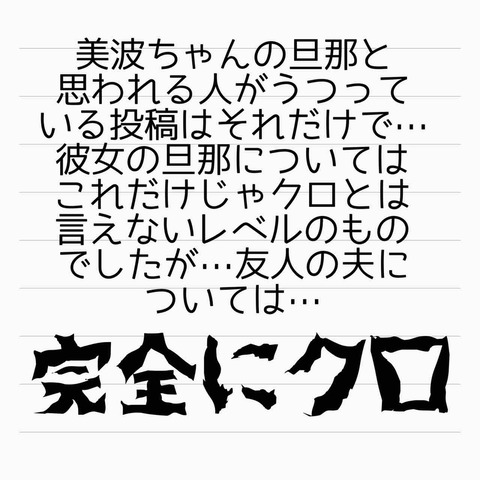 美波ちゃんの旦那と
思われる人がうつって
いる投稿はそれだけで…
彼女の旦那については
これだけじゃクロとは
言えないレベルのもの
でしたが…友人の夫に
ついては…
完全にクロ